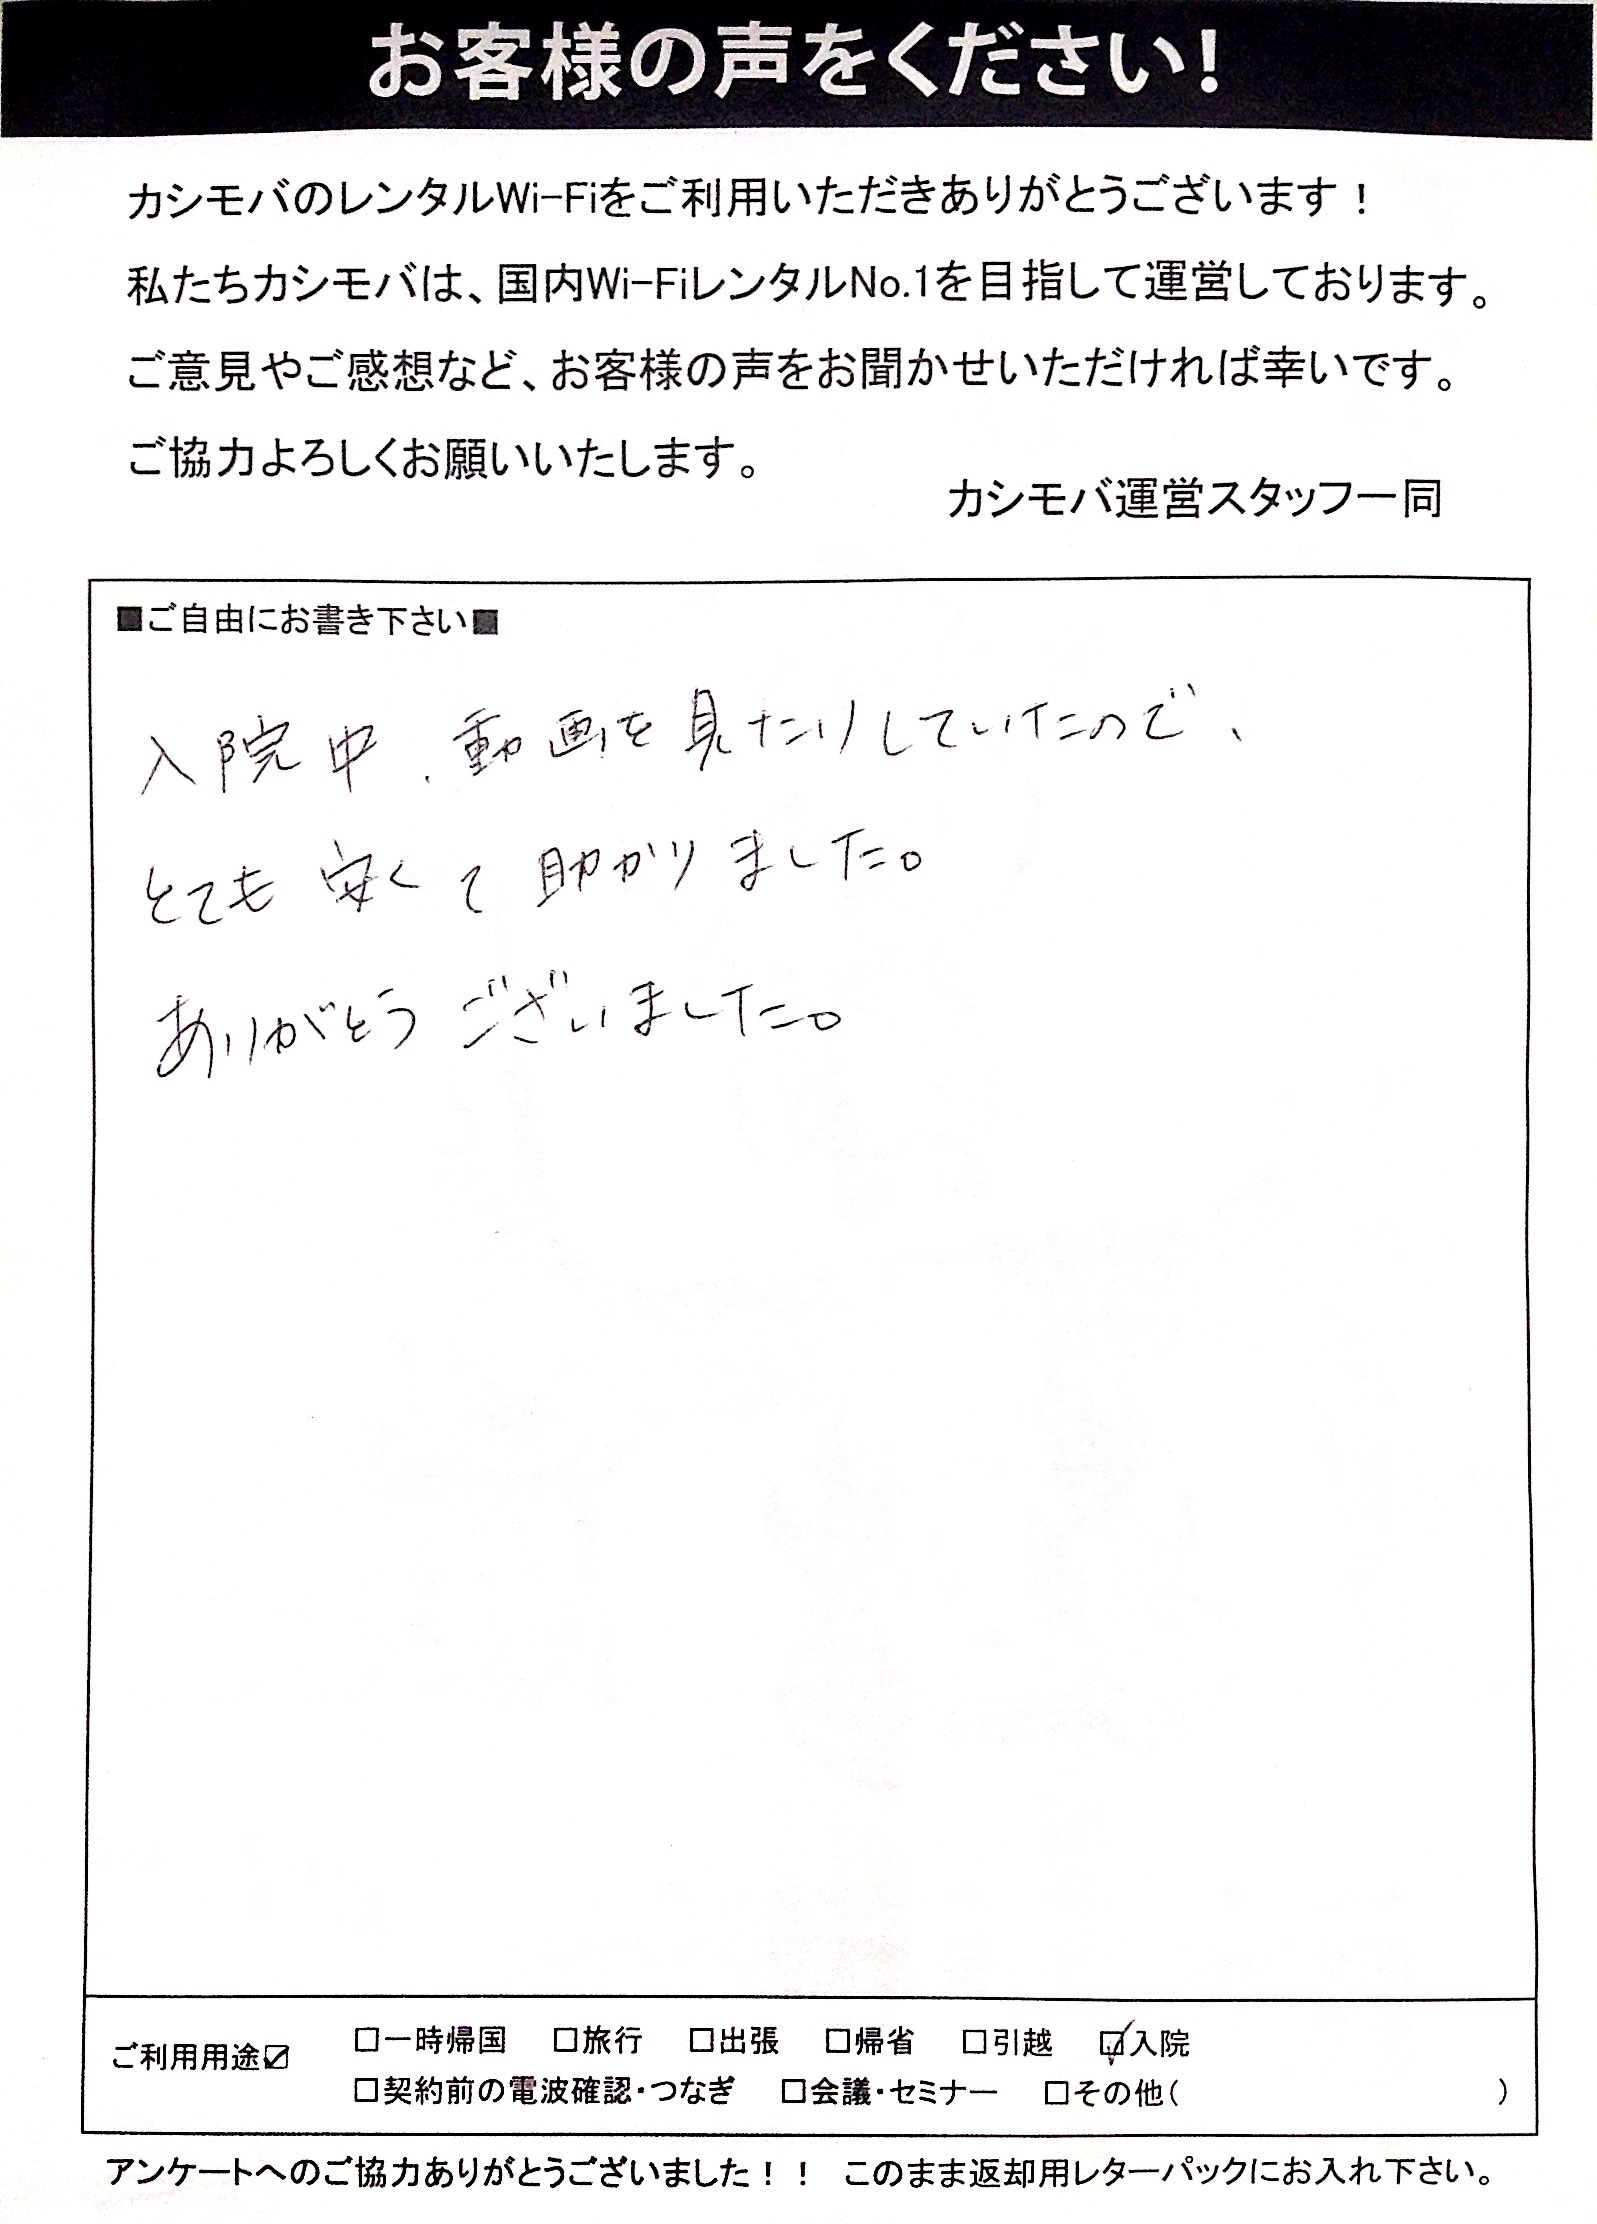 お客様の声をください!
カシモバのレンタルWi-Fiをご利用いただきありがとうございます！
私たちカシモバは、国内Wi-FiレンタルNo.1を目指して運営しております。
ご意見やご感想など、お客様の声をお聞かせいただければ幸いです。
ご協力よろしくお願いいたします。
カシモバ運営スタッフ一同
■ご自由にお書き下さい■
入院中、動画を見たりしていたので、
とても安くて助かりました。
ありがとうございました。
ご利用用途☑
□一時帰国 □旅行 □出張 □帰省 □引越 ☑入院
□契約前の電波確認・つなぎ □会議・セミナー □その他( )
アンケートへのご協力ありがとうございました！！ このまま返却用レターパックにお入れ下さい。